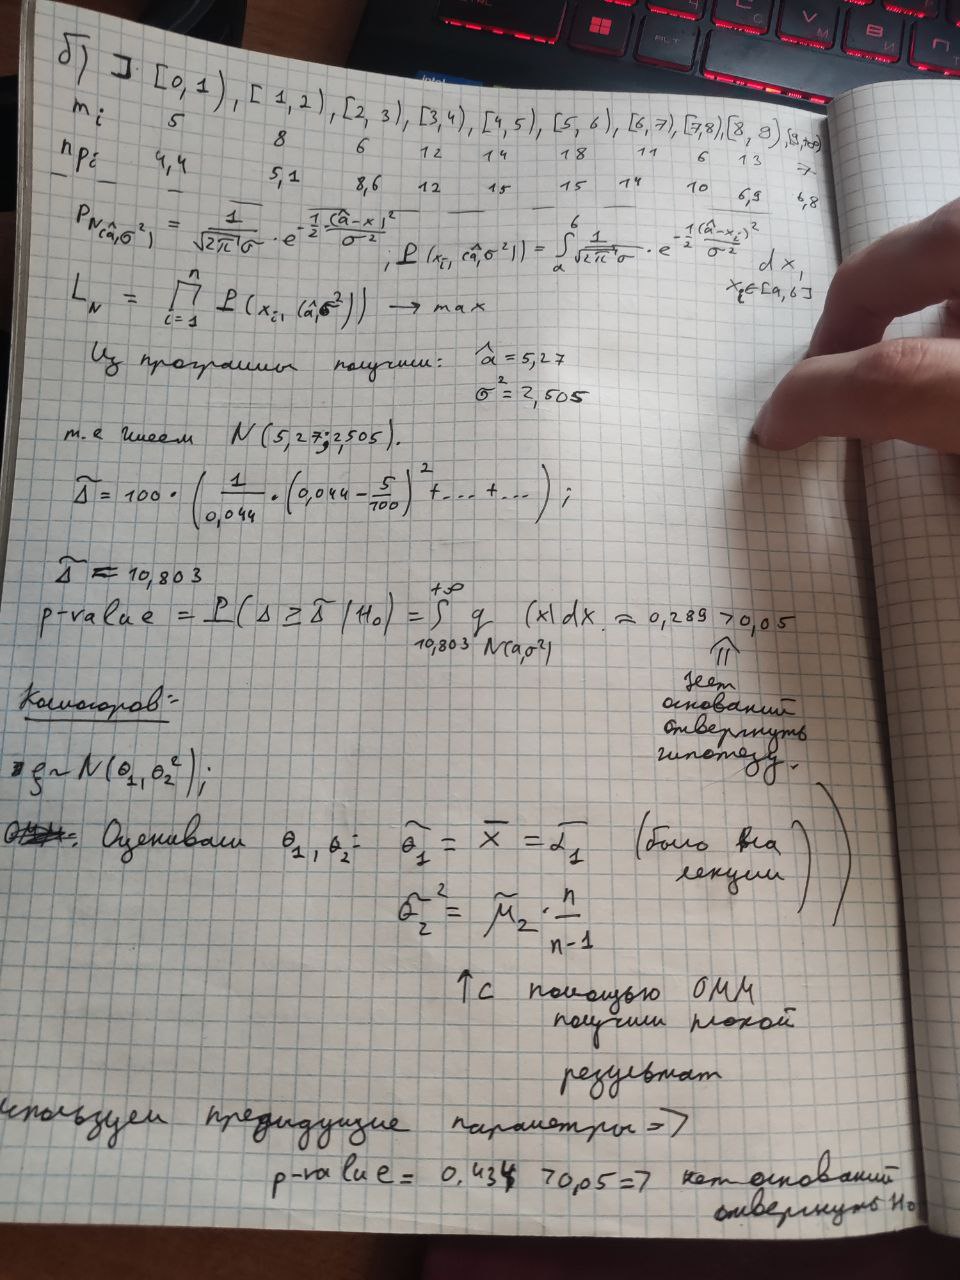 б) J: [0,1), [1,2), [2,3), [3,4), [4,5), [5,6), [6,7), [7,8), [8,9), [9,+∞)
mᵢ 5 8 6 12 14 18 11 6 13 7
npᵢ 4,4 5,1 8,6 12 15 15 14 10 6,9 6,8
P_N(â,σ²) = 1/(√2π σ) · e^(-1/2 (â-x)²/σ²) ; P(xᵢ, (â,σ²)) = ∫_a^б 1/(√2π σ) · e^(-1/2 (â-xᵢ)²/σ²) dx, xᵢ∈[a,б]
L_N = ∏_{i=1}^n P(xᵢ, (â,σ²)) → max
Из программы получили: â = 5,27
σ² = 2,505
т.е имеем N(5,27;2,505).
Δ̃ = 100 · (1/0,044 · (0,044 - 5/100)² + ... + ...) ;
Δ̃ ≈ 10,803
p-value = P(Δ ≥ Δ̃ / H₀) = ∫_{10,803}^{+∞} q_N(a,σ²) (x)dx ≈ 0,289 > 0,05
⇑
нет
оснований
отвергнуть
гипотезу.
Колмогоров:
ξ ~ N(θ₁, θ₂²);
Оценивали θ₁, θ₂: θ̃₁ = x̄ = α̃₁ (было на
лекции)
θ̃₂² = μ̃₂ · n/(n-1)
↑ с помощью ОММ
получили плохой
результат
используем предидущие параметры =>
p-value = 0,434 > 0,05 => нет оснований
отвергнуть H₀
intel
ALT